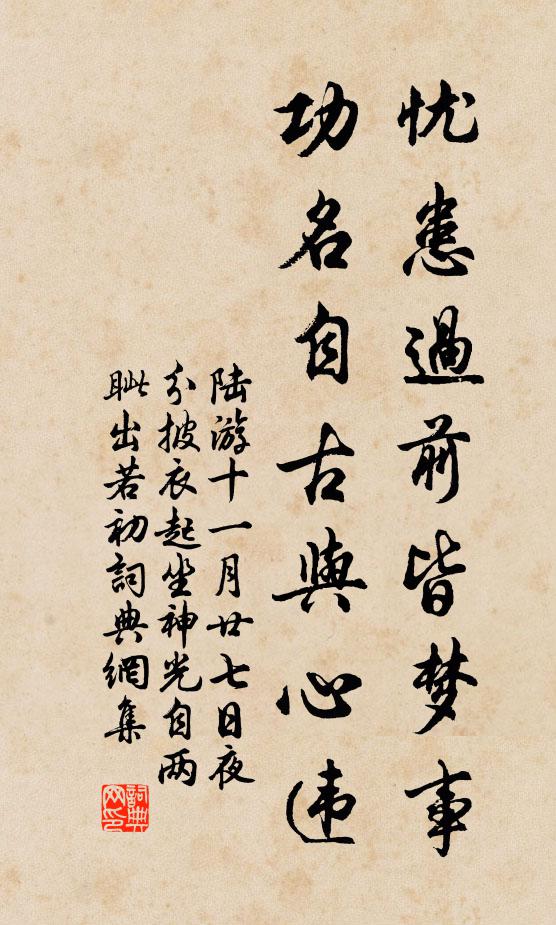 忧患過前皆梦事
功名自古與心违
陆游十一月廿七日夜
分披衣起坐神光自两
眦出若初詞典網集
詞典网印